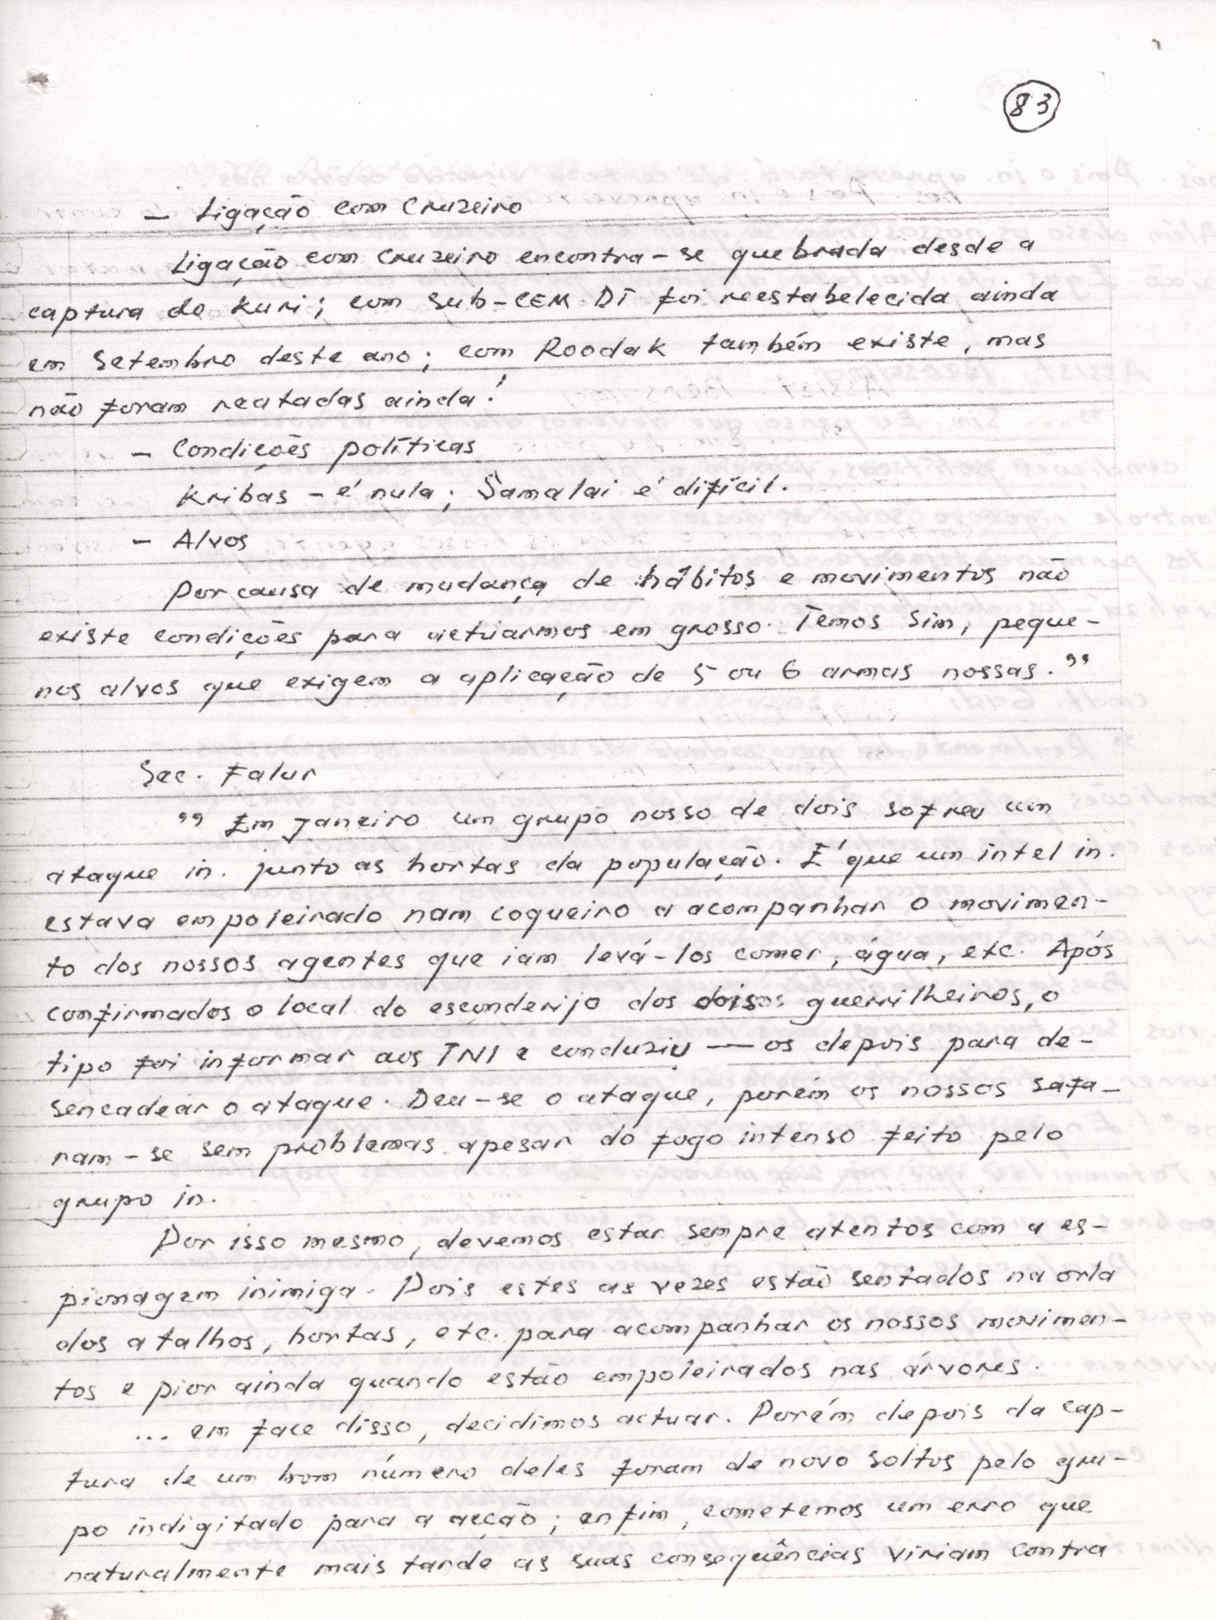 83
— Ligação com Cruzeiro
Ligação com Cruzeiro encontra-se quebrada desde a
captura do Kuri; com Sub-CEM DT foi reestabelecida ainda
em Setembro deste ano; com Roodak também existe, mas
não foram reatadas ainda!
— Condições políticas
Kribas - é nula; Samalai é difícil.
— Alvos
Por causa de mudança de hábitos e movimentos não
existe condições para actuarmos em grosso. Temos sim, peque-
nos alvos que exigem a aplicação de 5 ou 6 armas nossas."
Sec. Falur
"Em Janeiro um grupo nosso de dois sofreu um
ataque in. junto as hortas da população. É que um intel in.
estava empoleirado nam coqueiro a acompanhar o movimen-
to dos nossos agentes que iam levá-los comer, água, etc. Após
confirmados o local do esconderijo dos dois guerrilheiros, o
tipo foi informar aos TNI e conduziu — os depois para de-
sencadear o ataque. Deu-se o ataque, porém os nossos safa-
ram-se sem problemas apesar do fogo intenso feito pelo
grupo in.
Por isso mesmo, devemos estar sempre atentos com a es-
pionagem inimiga. Pois estes as vezes estão sentados na orla
dos atalhos, hortas, etc. para acompanhar os nossos movimen-
tos e pior ainda quando estão empoleirados nas árvores.
... em face disso, decidimos actuar. Porém depois da cap-
tura de um bom número deles foram de novo soltos pelo gru-
po indigitado para a acção; enfim, cometemos um erro que
naturalmente mais tarde as suas consequências viriam contra